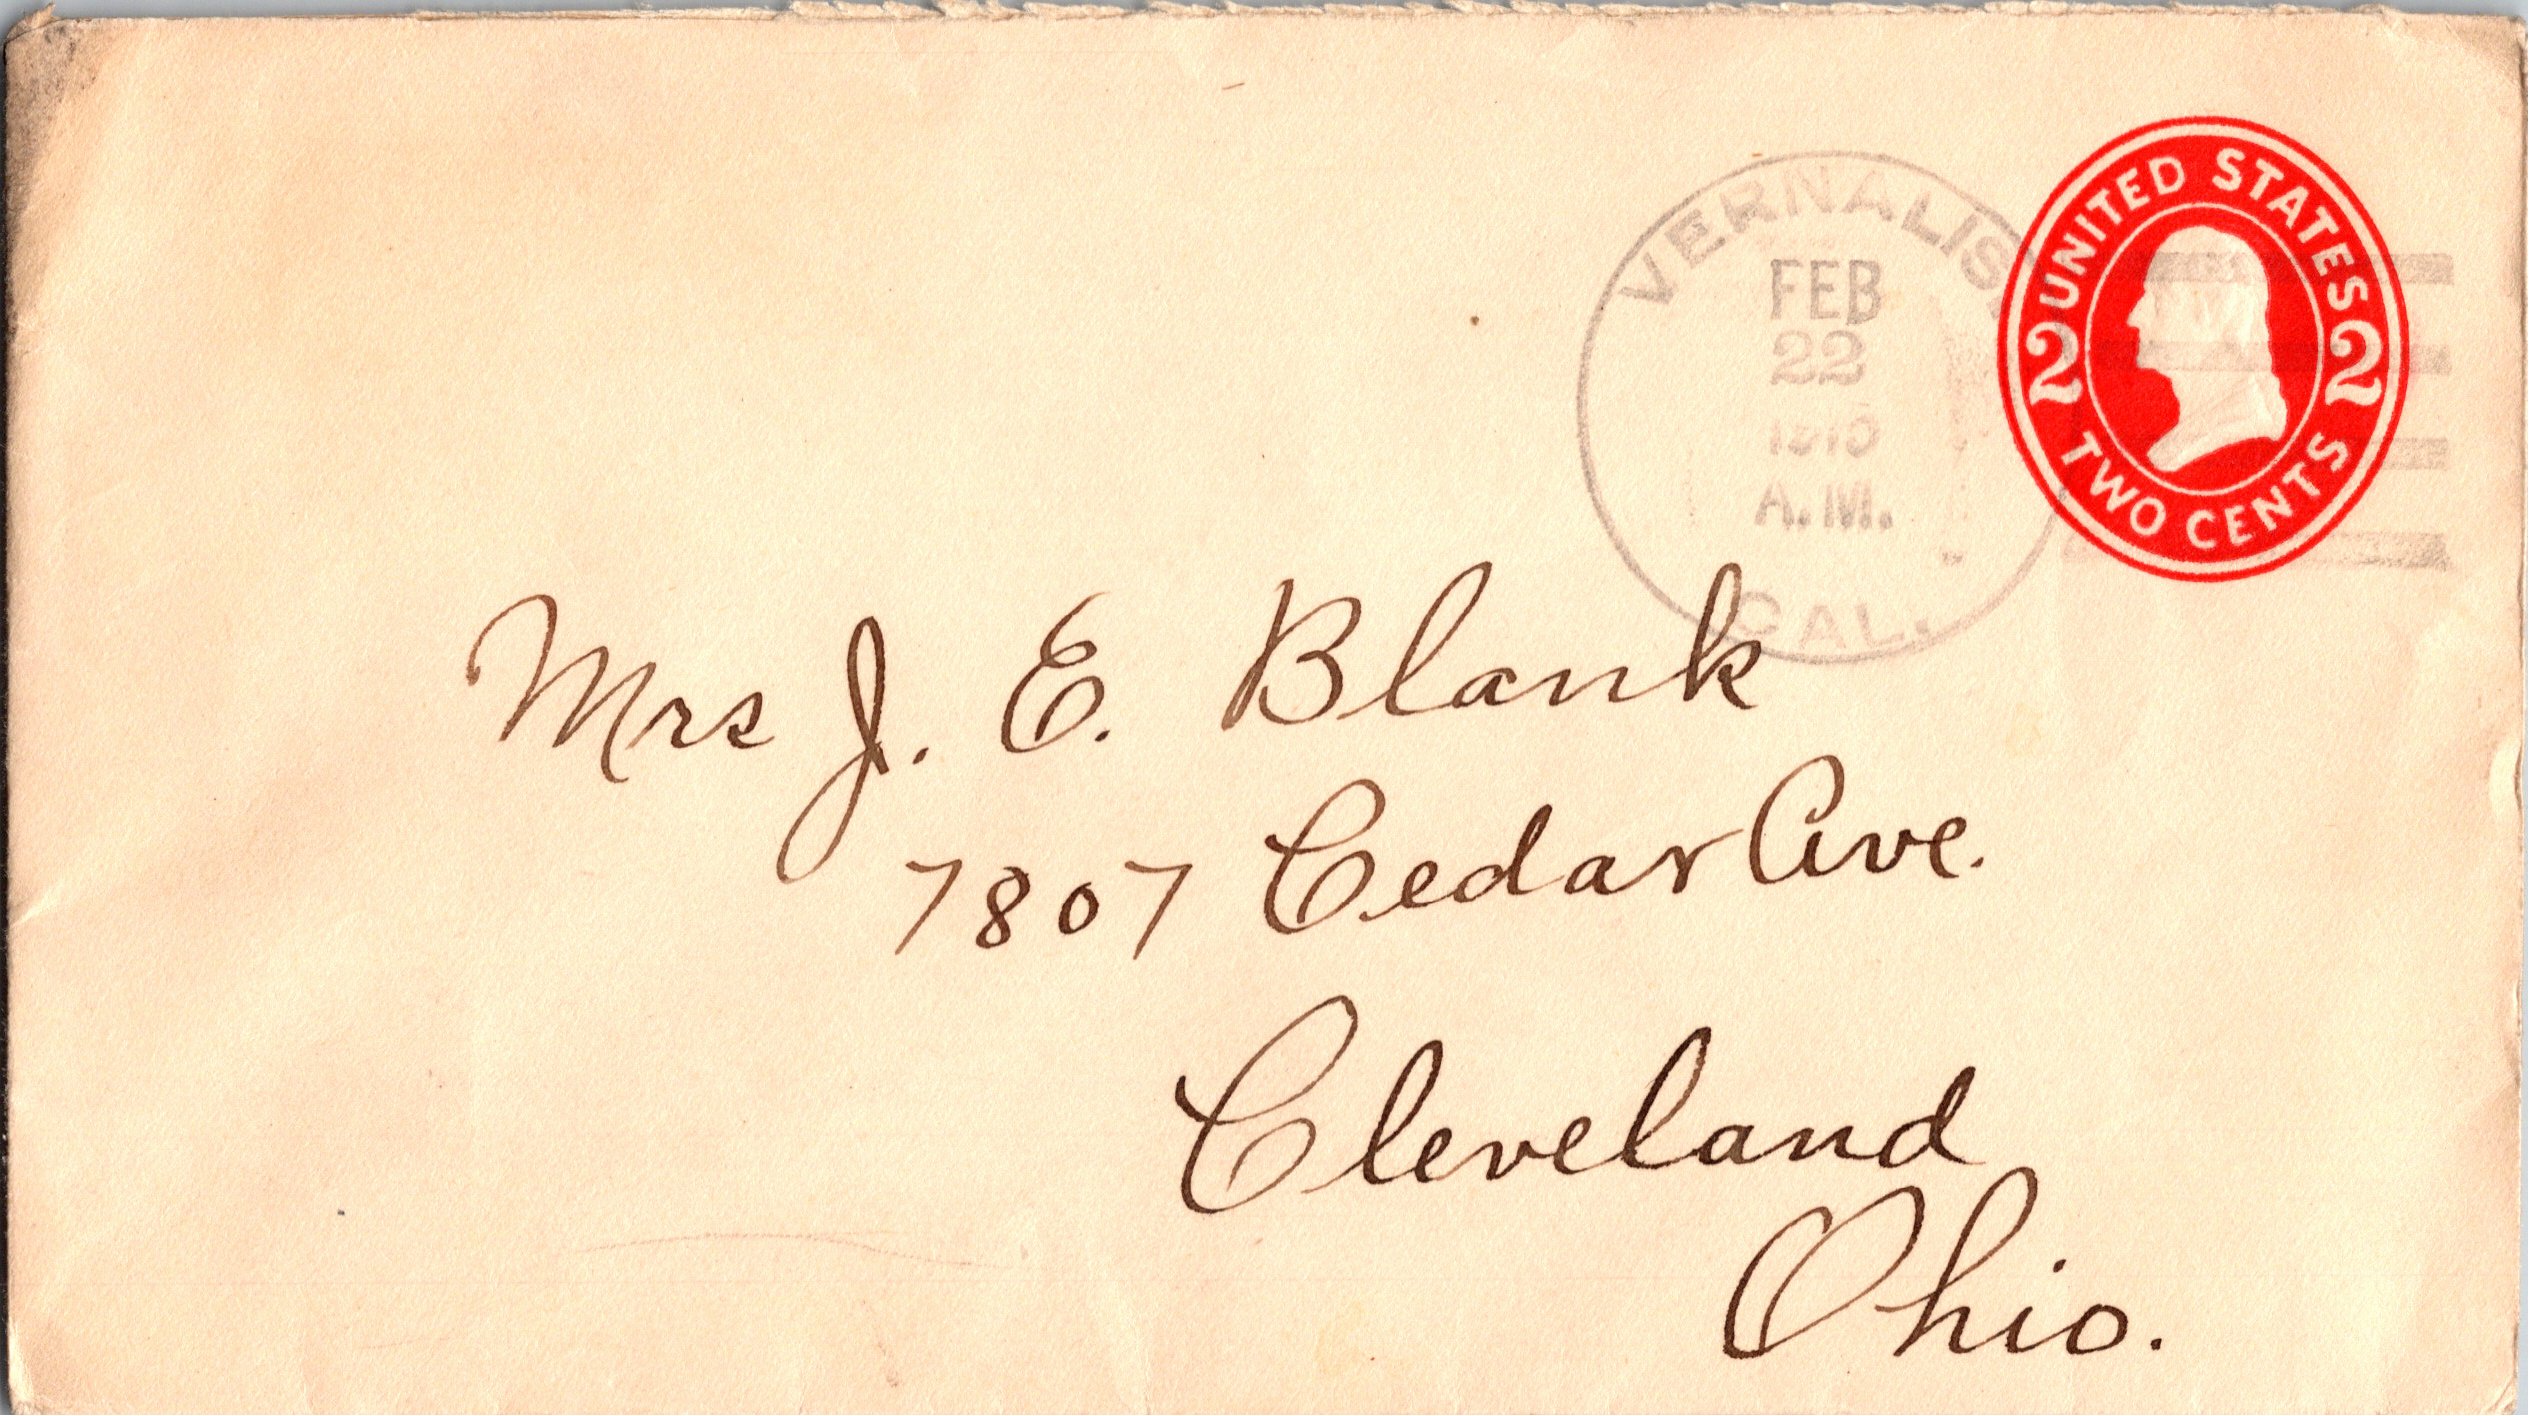 VERNALIS
FEB
22
A.M.
CAL.
UNITED STATES
2 2
TWO CENTS
Mrs J. E. Blank
7807 Cedar Ave.
Cleveland
Ohio.